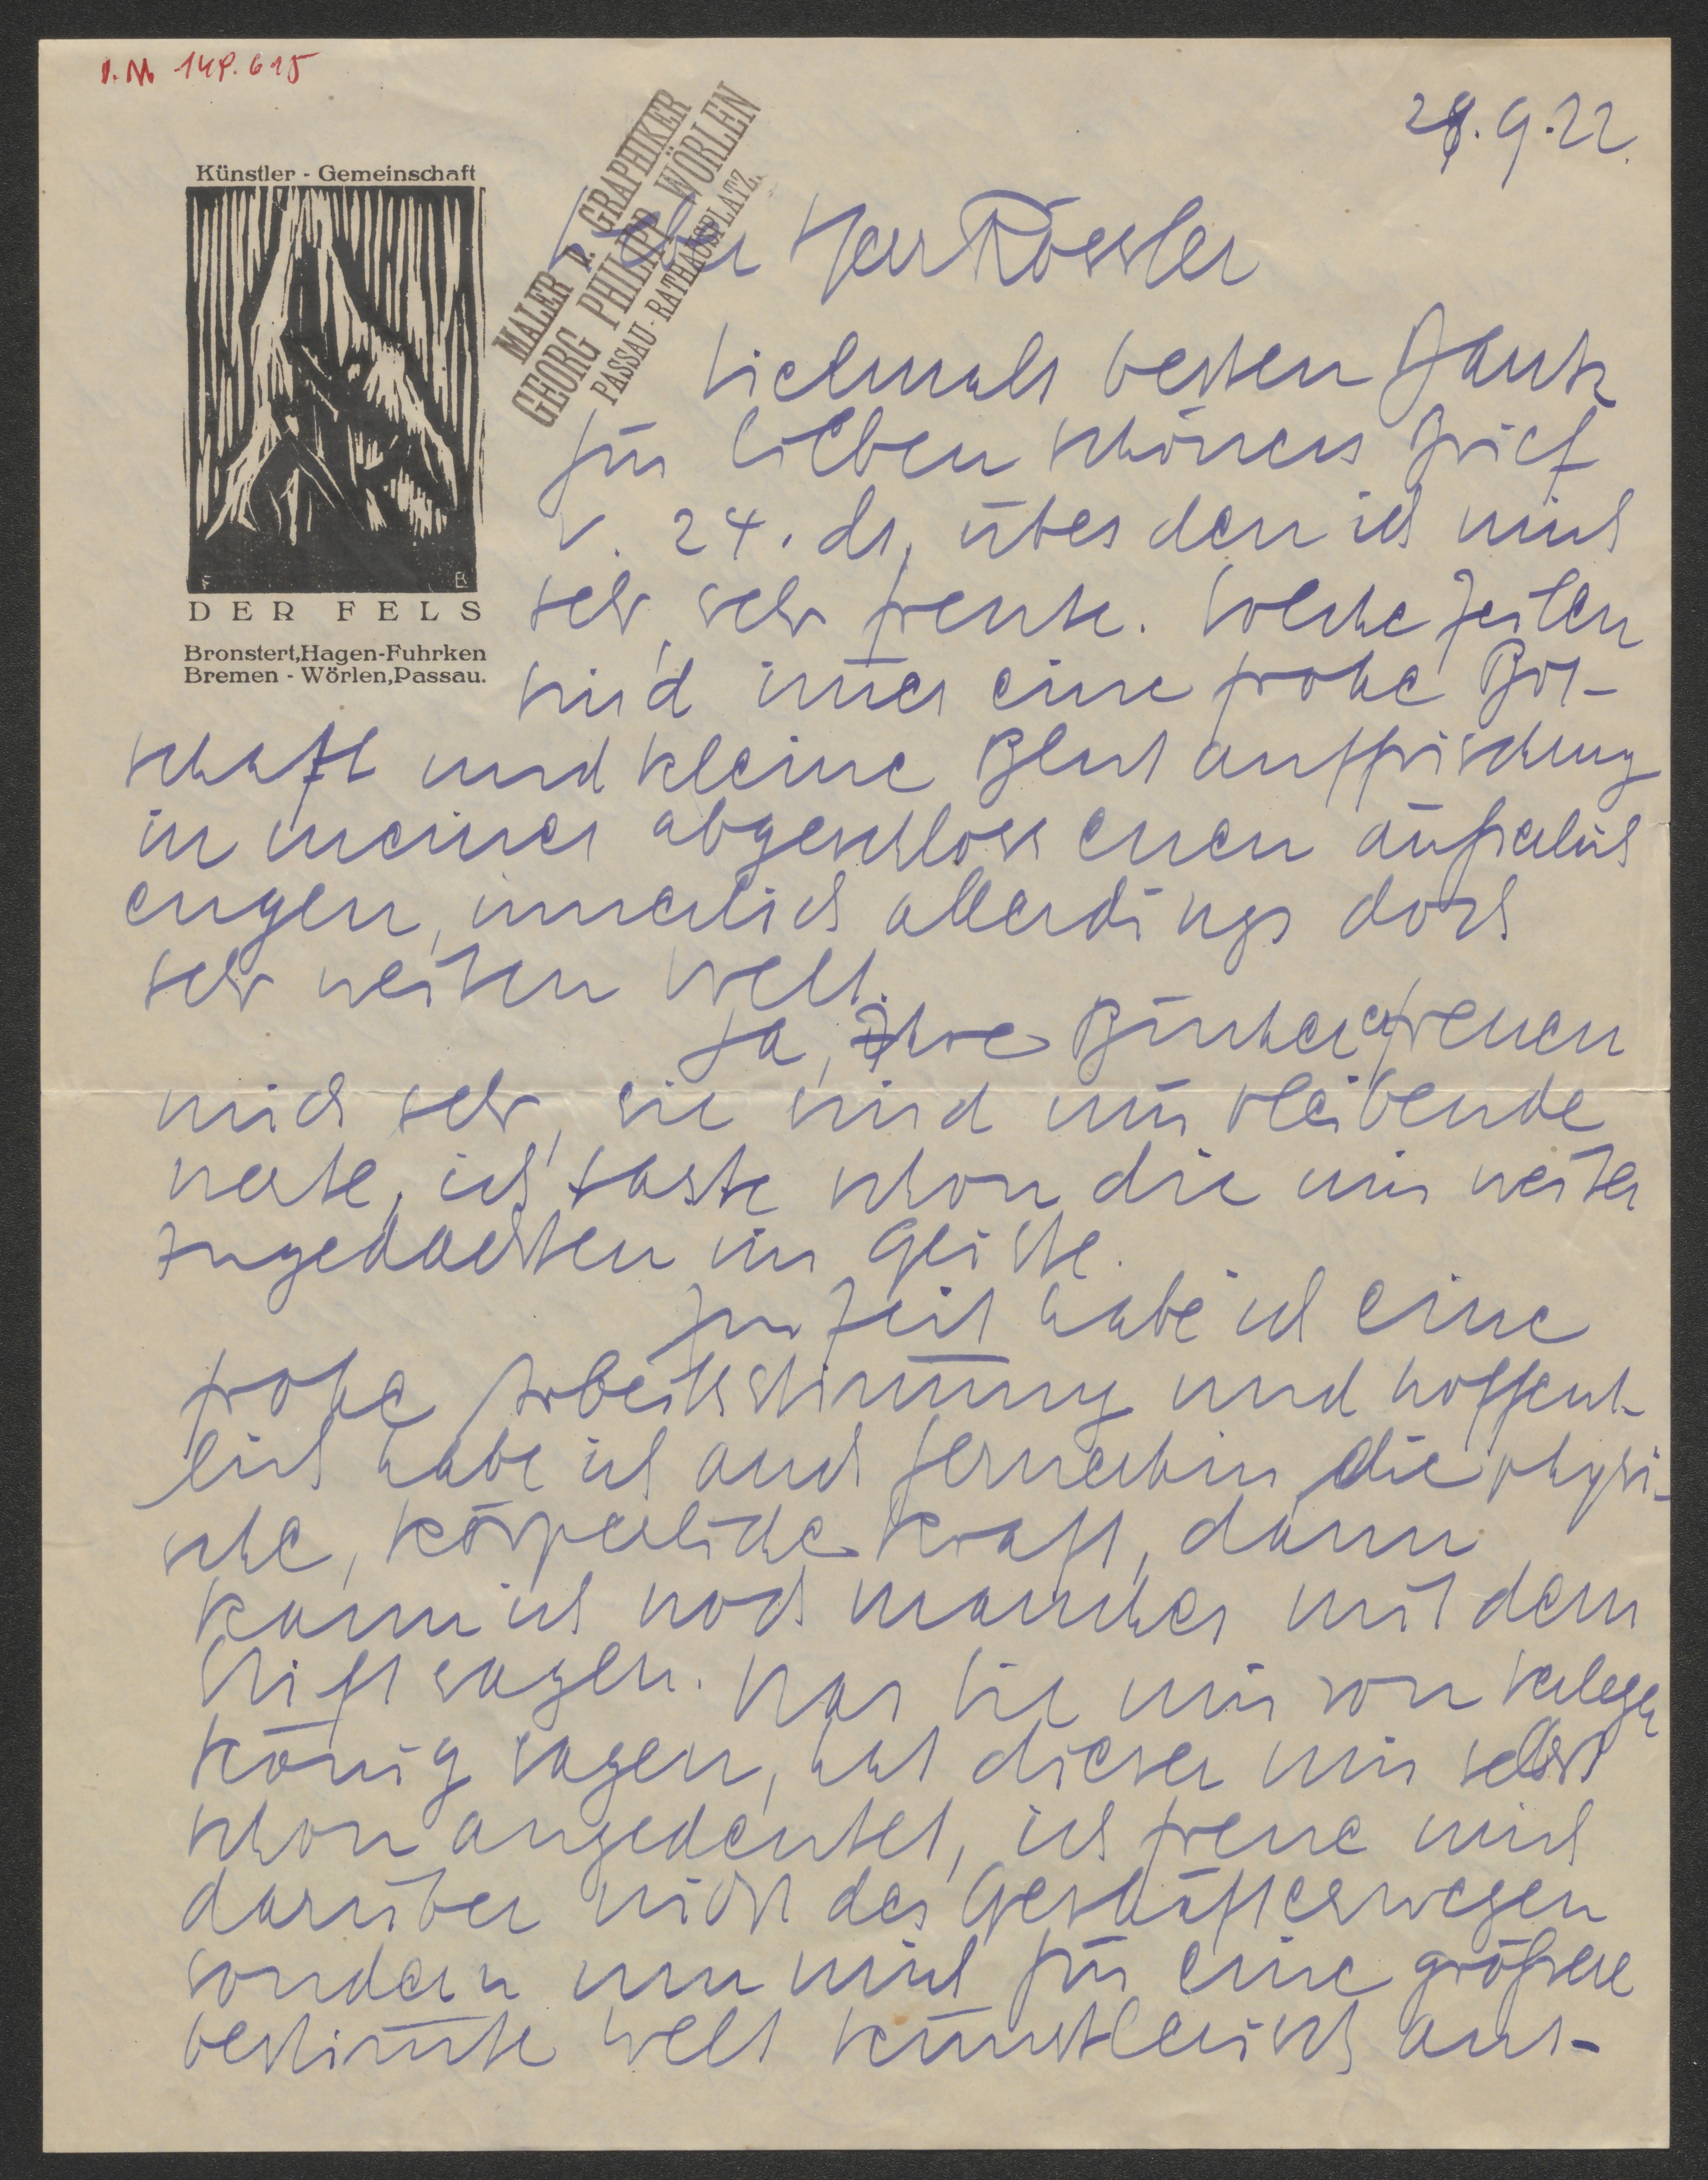 I. N. 148.615
28.9.22.
Künstler - Gemeinschaft
DER FELS
Bronstert, Hagen-Fuhrken
Bremen - Wörlen, Passau.
MALER u. GRAPHIKER
GEORG PHILIPP WÖRLEN
PASSAU - RATHAUSPLATZ.
Herr Rössler
Vielmals besten Dank
für lieben schönen Brief
v. 24. ds, über den ich mich
sehr, sehr freute. Solche Zeilen
sind im̄er eine frohe Bot-
schaft und kleine Blutauffrischung
in meiner abgeschlossenen äußerlich
engen, innerlich allerdings doch
sehr weiten Welt.
Ja, Ihre Bücher freuen
mich sehr, sie sind mir bleibende
Werte, ich taste schon die mir weiter
zugedachten im Geiste.
Zur Zeit habe ich eine
frohe Arbeitsstim̄ung und hoffent-
lich habe ich auch fernerhin die physi-
sche, körperliche Kraft, dann
kann ich noch manches mit dem
Stift sagen. Was Sie mir von
König sagen, hat dieser mir selbst
schon angedeutet, ich freue mich
darüber nicht des Geschäfteswegen
sondern um mich für eine größere
bestim̄te Welt künstlerisch aus-